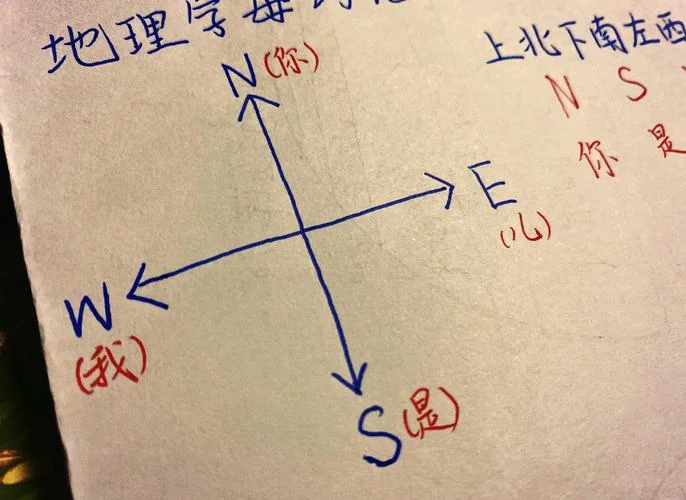 地理字母
上北下南左西
N S
你 是
N(你)
E
(儿)
W
(我)
S(是)